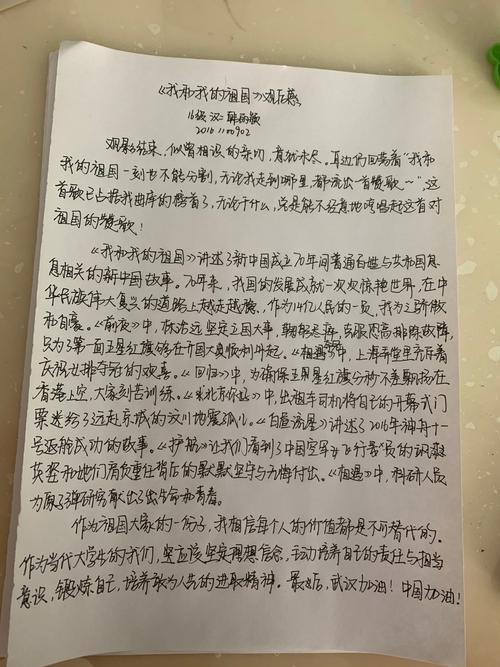 《我和我的祖国》观后感
16级 汉二 韩雨
2016110902
观影结束，似曾相识的亲切，意犹未尽。耳边仍回荡着“我和
我的祖国一刻也不能分割，无论我走到哪里，都流出一首赞歌～”这
首歌已占据我曲库的榜首了，无论干什么，总是能不经意地哼唱起这首对
祖国的赞歌！
《我和我的祖国》讲述了新中国成立70年间普通百姓与共和国息
息相关的新中国故事。70年来，我国的发展成就一次次惊艳世界，在中
华民族伟大复兴的道路上越走越稳，作为14亿人民的一员，我为之骄傲
和自豪。《前夜》中，林治远坚定立国大事，克服恐高排除故障，
只为了第一面五星红旗能够在开国大典顺利升起。《夺冠》中，上海弄堂里充斥着
庆祝女排夺冠的欢喜。《回归》中，为确保五星红旗分秒不差飘扬在
香港上空，大家刻苦训练。《北京你好》中，出租车司机将自己的开幕式门
票送给了远赴京城的汶川地震孤儿。《白昼流星》讲述了2016年神舟十一
号返航成功的故事。《护航》让我们看到了中国空军女飞行员的飒爽
英姿和她们肩负重任背后的默默坚守与无悔付出。《相遇》中，科研人员
为原子弹研究献出了生命和青春。
作为祖国大家的一份子，我相信每个人的价值都是不可替代的。
作为当代大学生的我们，更应该坚定理想信念，主动培养自己的责任与担当
意识，锻炼自己，培养敢为人先的进取精神。最后，武汉加油！中国加油！